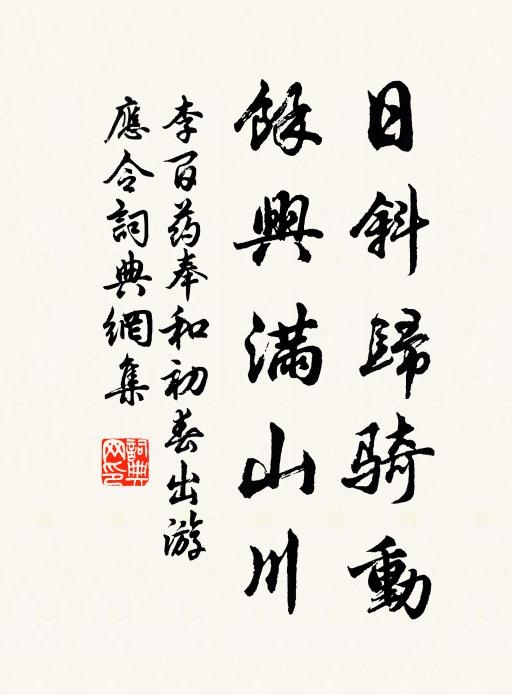 日斜歸骑動
餘興滿山川
李百药奉和初春出游
應令詞典網集
詞典
网印